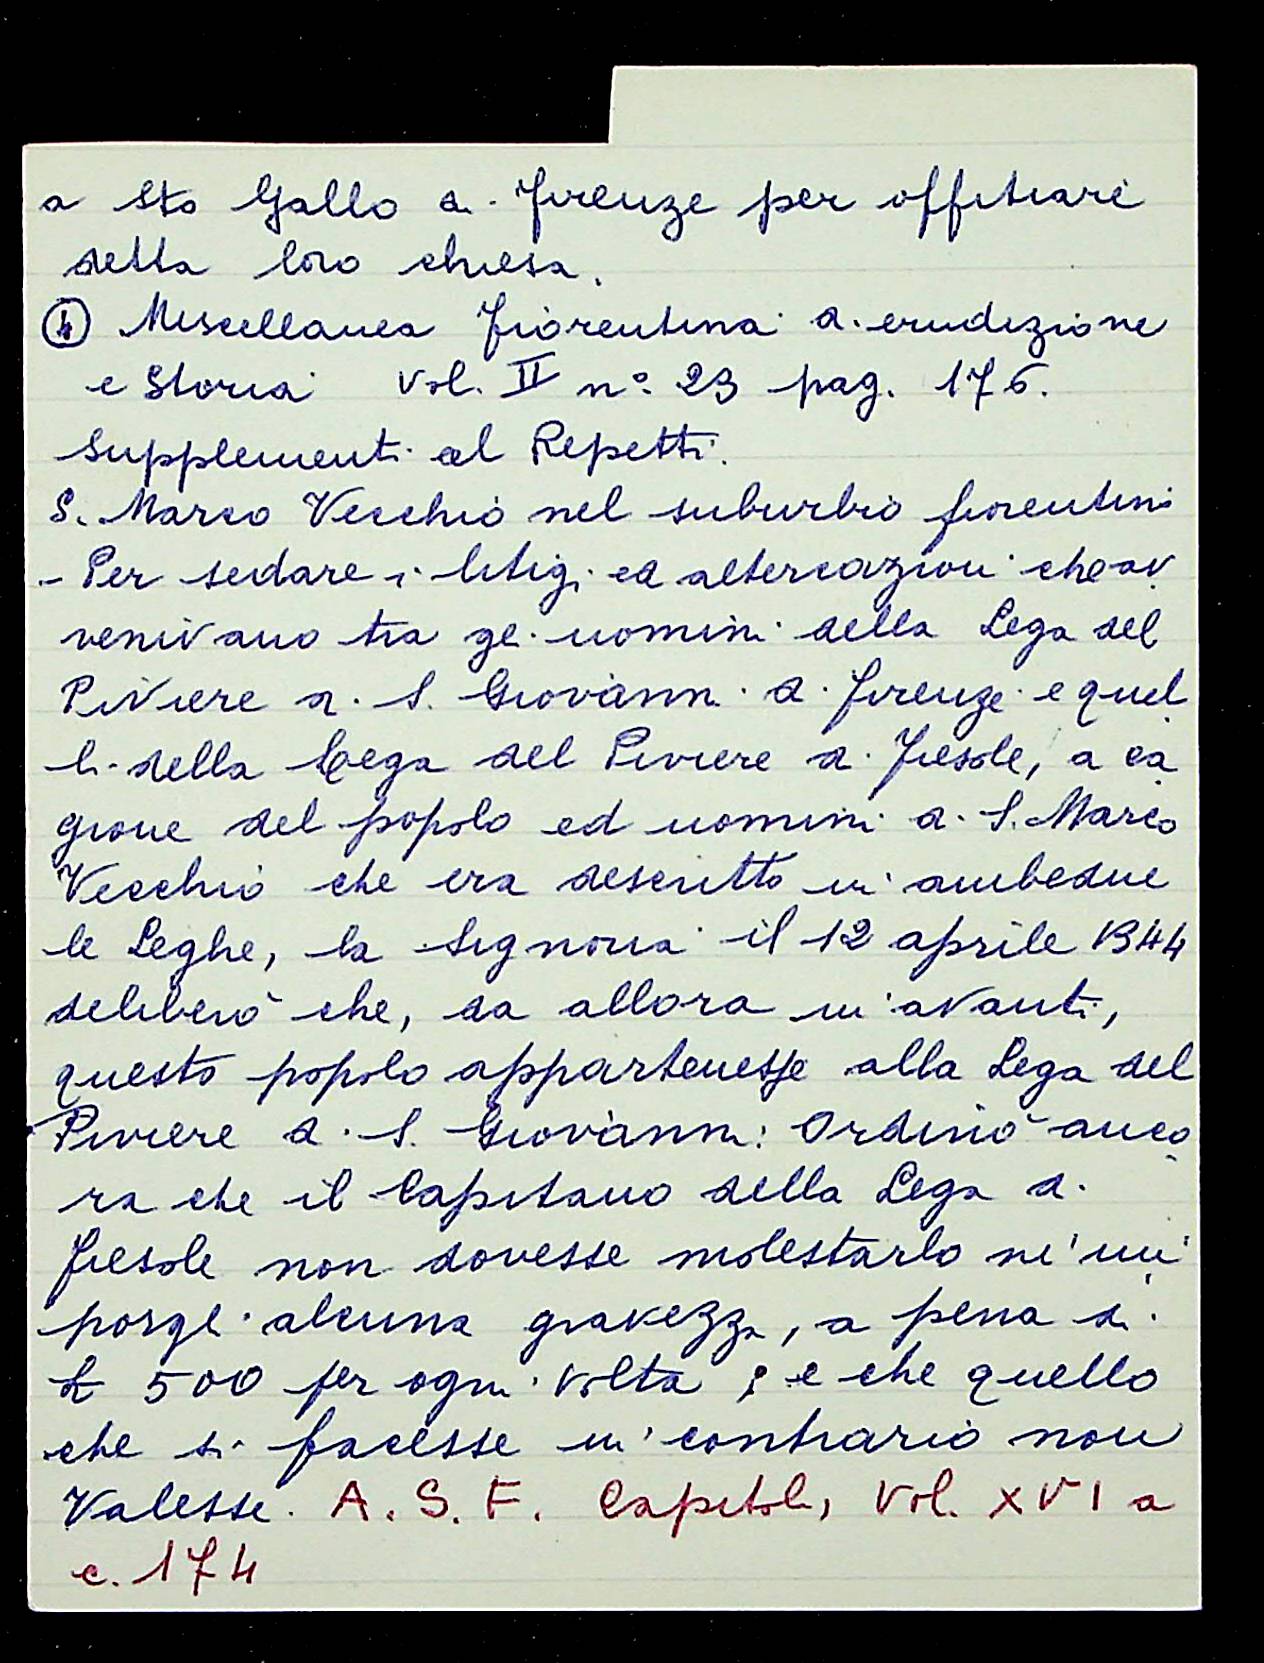 a Sto Gallo di Firenze per offitiare
detta loro chiesa.
④ Miscellanea fiorentina di erudizione
e Storia vol. II n° 23 pag. 176.
Supplementi al Repetti.
S. Marco Vecchio nel suburbio fiorentino
- Per sedare i litigi ed altercazioni che av
venivano tra gli uomini della Lega del
Piviere di S. Giovanni di Firenze e quel
li della Lega del Piviere di Fiesole, a ca
gione del popolo ed uomini di S. Marco
Vecchio che era descritto in ambedue
le Leghe, la Signoria il 12 aprile 1344
deliberò che, da allora in avanti,
questo popolo appartenesse alla Lega del
Piviere di S. Giovanni: Ordinò anco
ra che il Capitano della Lega di
Fiesole non dovesse molestarlo nè im
porgli alcuna gravezza, a pena di
£ 500 per ogni volta; e che quello
che si facesse in contrario non
Valesse. A. S. F. Capitoli, Vol. XVI a
c. 174